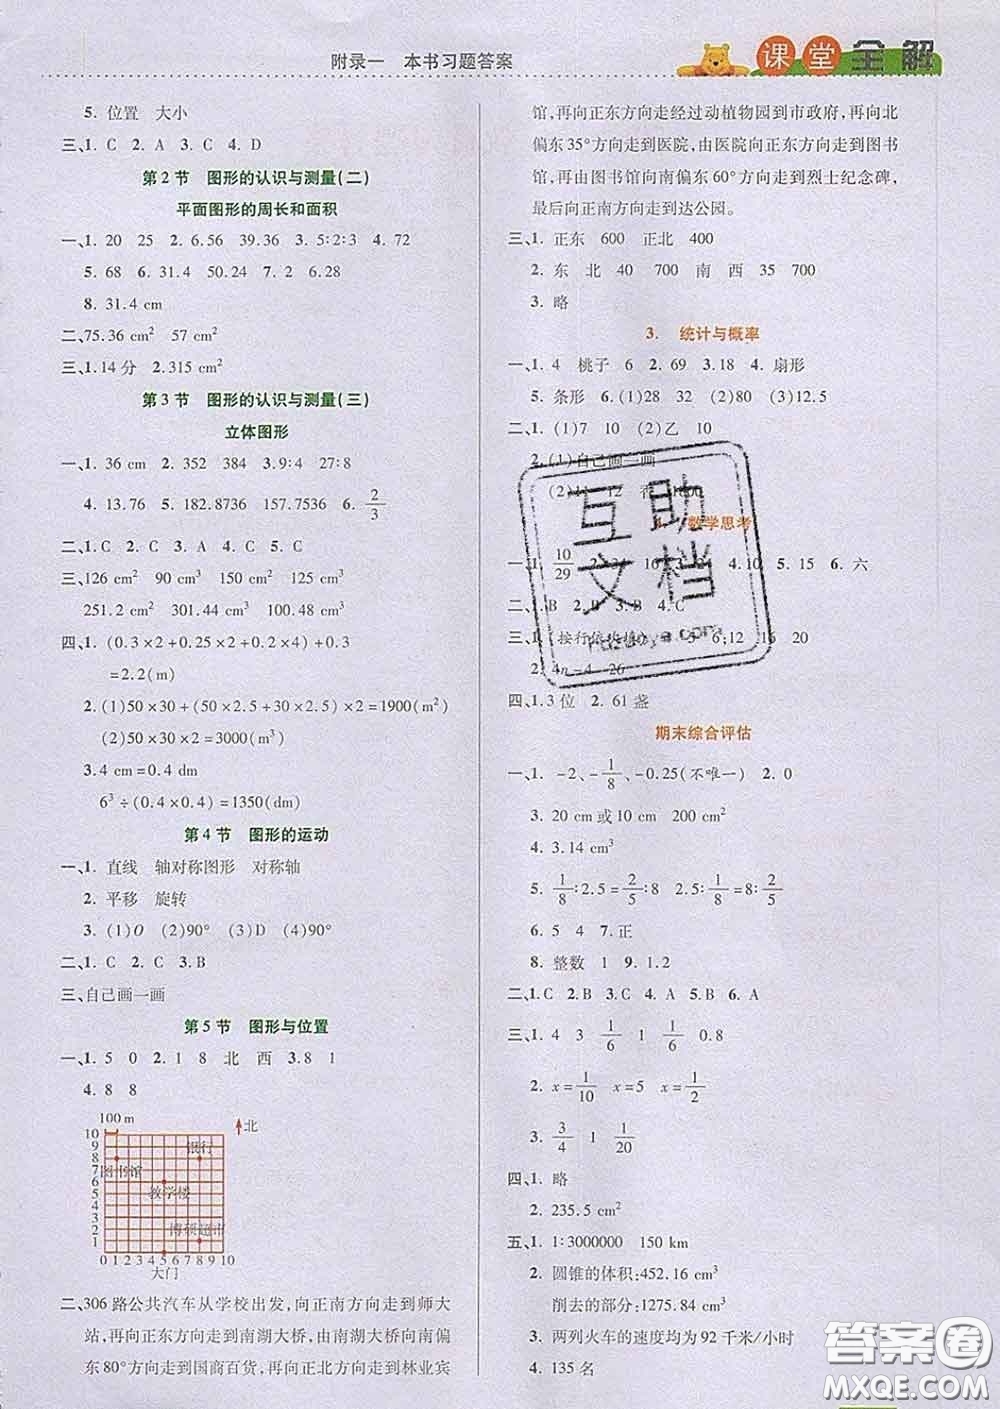 附录一　本书习题答案
课堂全解
5. 位置　大小
三、1. C　2. A　3. C　4. D
第2节　图形的认识与测量(二)
平面图形的周长和面积
一、1. 20　25　2. 6.56　39.36　3. 5∶2∶3　4. 72
5. 68　6. 31.4　50.24　7. 2　6.28
8. 31.4 cm
二、75.36 cm²　57 cm²
三、1. 14分　2. 315 cm²
第3节　图形的认识与测量(三)
立体图形
一、1. 36 cm　2. 352　384　3. 9∶4　27∶8
4. 13.76　5. 182.8736　157.7536　6. 2/3
二、1. C　2. C　3. C　4. C　5. C
三、126 cm²　90 cm³　150 cm²　125 cm³
251.2 cm²　301.44 cm³　100.48 cm³
四、1. (0.3×2+0.25×2+0.2×2)+0.3
=2.2(m)
2. (1)50×30+(50×2.5+30×2.5)×2=1900(m²)
(2)50×30×2=3000(m³)
3. 4 cm=0.4 dm
6³÷(0.4×0.4)=1350(dm)
第4节　图形的运动
一、1. 直线　轴对称图形　对称轴
2. 平移　旋转
3. (1)O　(2)90°　(3)D　(4)90°
二、1. C　2. C　3. B
三、自己画一画
第5节　图形与位置
一、1. 5　0　2. 1　8　北　西　3. 8　1
4. 8　8
100 m
北
10
9
8
7
6
5
4
3
2
1
银行
图书馆
教学楼
博硕超市
0 1 2 3 4 5 6 7 8 9 10
大门
二、306路公共汽车从学校出发,向正南方向走到师大
站,再向正东方向走到南湖大桥,由南湖大桥向南偏
东80°方向走到国商百货,再向正北方向走到林业宾
馆,再向正东方向走经过动植物园到市政府,再向北
偏东35°方向走到医院,由医院向正东方向走到图书
馆,再由图书馆向南偏东60°方向走到烈士纪念碑,
最后向正南方向走到达公园。
三、1. 正东　600　正北　400
2. 东　北　40　700　南　西　35　700
3. 略
3. 统计与概率
一、1. 4　桃子　6　2. 69　3. 18　4. 扇形
5. 条形　6. (1)28　32　(2)80　(3)12.5
二、1. (1)7　10　(2)乙　10
2. (1)自己画一画
(2)11　12
数学思考
一、1. 10/29　4. 10　5. 15　6. 六
二、1. B　2. B　3. B　4. C
三、1. 5　6;12　15　20
2. 4n-4　26
四、1. 3位　2. 61盏
期末综合评估
一、1. -2、-1/8、-0.25(不唯一)　2. 0
3. 20 cm或10 cm　200 cm²
4. 3.14 cm³
5. 1/8∶2.5=2/5∶8　2.5∶1/8=8∶2/5
6. 5　4　7. 正
8. 整数　1　9. 1.2
二、1. C　2. B　3. C　4. A　5. B　6. A
三、1. 4　3　1/6　1　1/6　0.8
2. x=1/10　x=5　x=1/2
3. 3/4　1　1/20
四、1. 略
2. 235.5 cm³
五、1. 1∶3000000　150 km
2. 圆锥的体积:452.16 cm³
削去的部分:1275.84 cm³
3. 两列火车的速度均为92千米/小时
4. 135名
互助
文档
答案圈
MXQE.COM